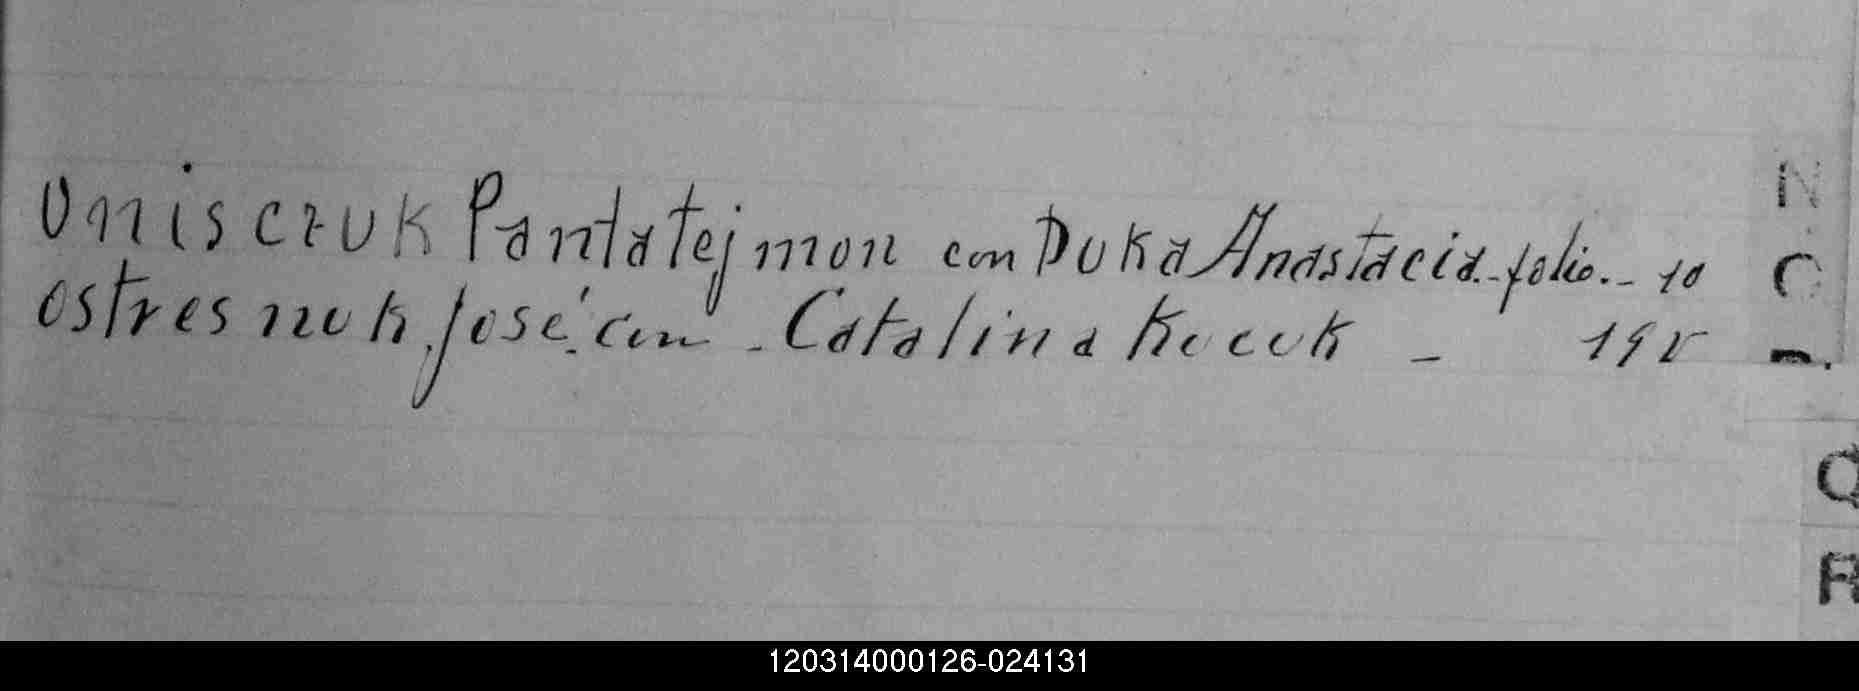 Onisczuk Pantatejmon con Duka Anastacia - folio. - 10
Ostresnuk, José. con - Catalina Kucuk -
N
O
Q
R
120314000126-024131